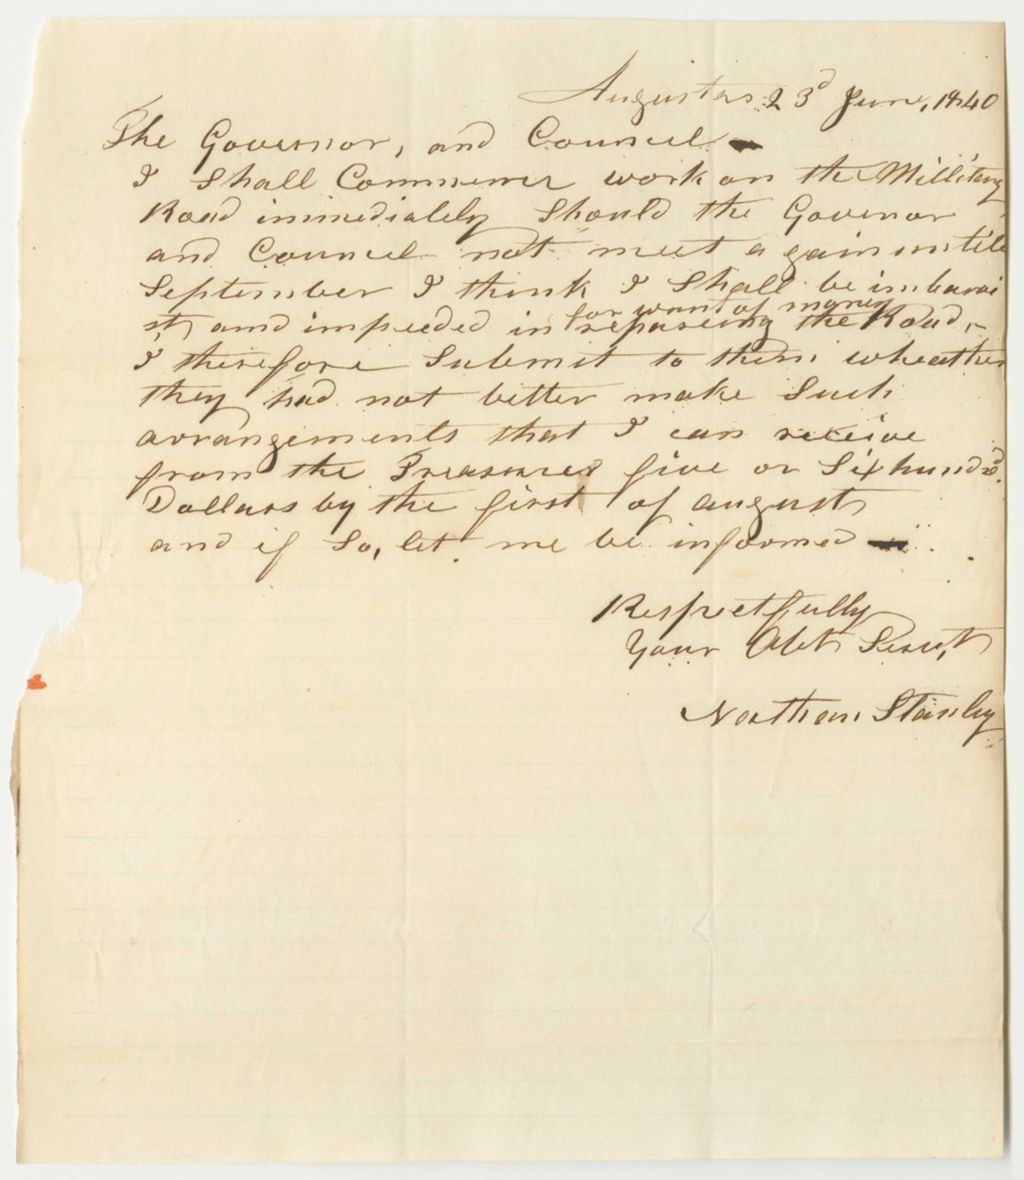 Augusta 23d June, 1840
The Governor, and Council
I Shall Commence work on the Millitary
Road immediately Should the Govenor
and Council not meet again untill
September I think I Shall be imbarai
st, and impeeded in for want of money repaireing the Road,
I therefore Submit to them wheather
they had not better make Such
arrangements that I can receive
from the Treasurer five or Six hundrd.
Dollars by the first of august
and if So, let me be informed
Respectfully
Your Obt Servt,
Nathan Stanley